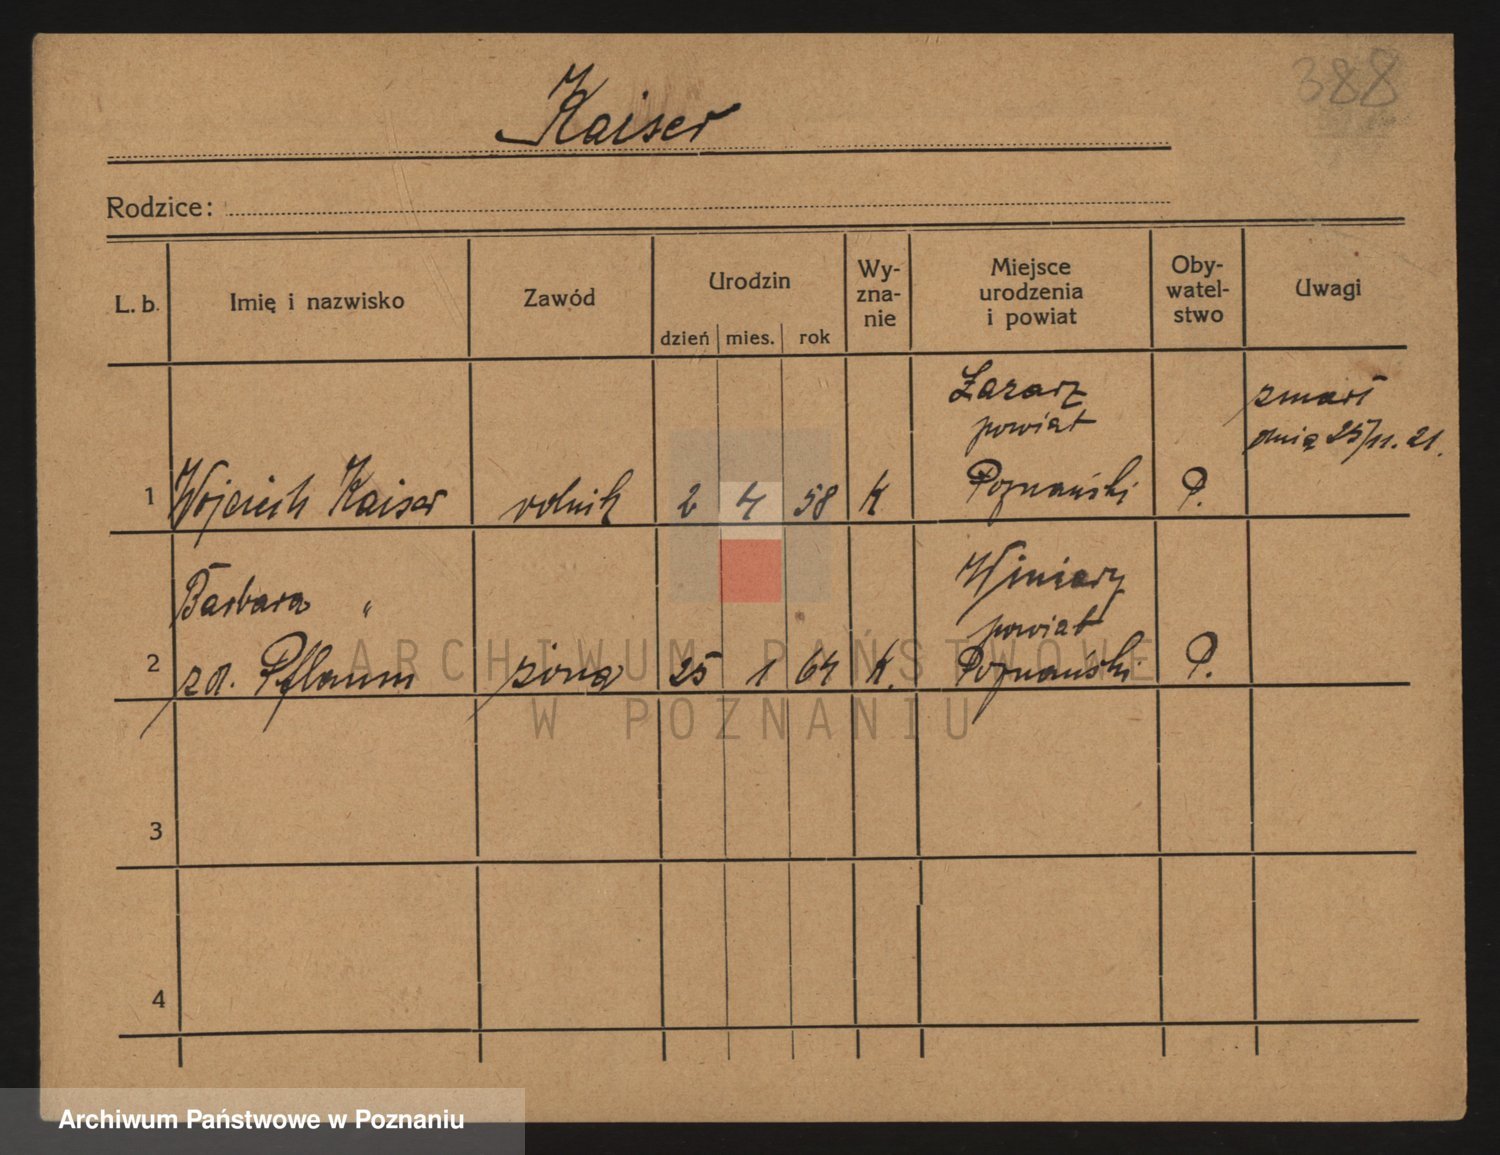 388
Kaiser
Rodzice:
L. b. Imię i nazwisko Zawód Urodzin dzień mies. rok Wy-zna-nie Miejsce urodzenia i powiat Oby-watel-stwo Uwagi
Łazarz zmarł
powiat dnia 25/11. 21.
1 Wojciech Kaiser rolnik 2 4 58 K Poznański P.
Barbara " Winiary
powiat
2 zd. Pflaum żona 25 1 64 K. Poznański P.
3
4
ARCHIWUM PAŃSTWOWE
W POZNANIU
Archiwum Państwowe w Poznaniu